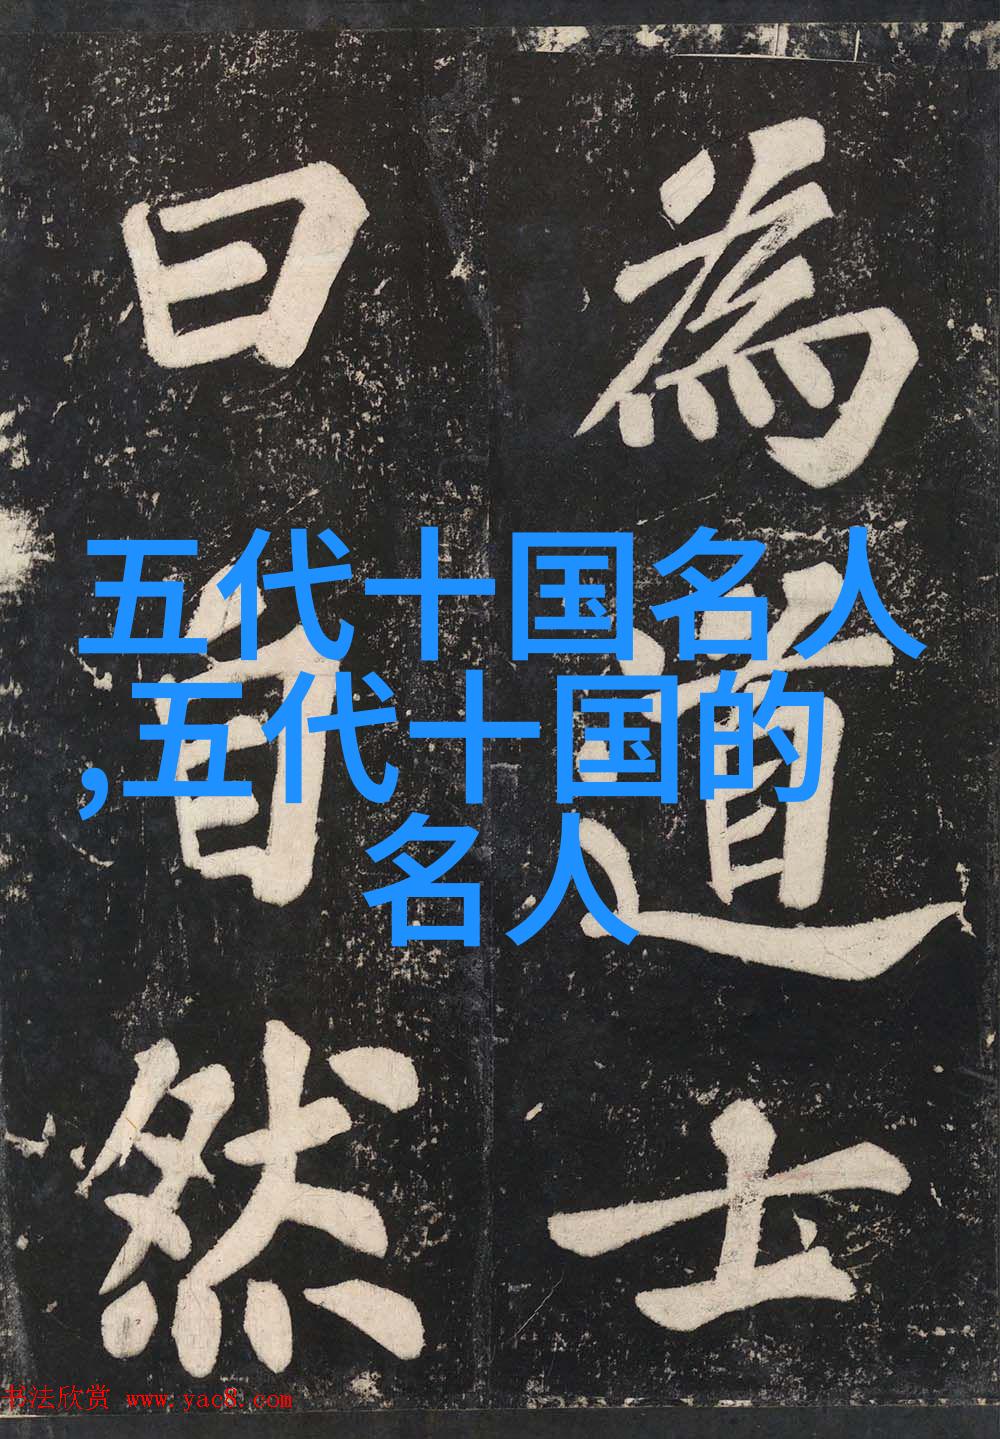 為道士
曰自然
五代十国名人
,五代十国的
名人
书法欣赏 www.yac8.com